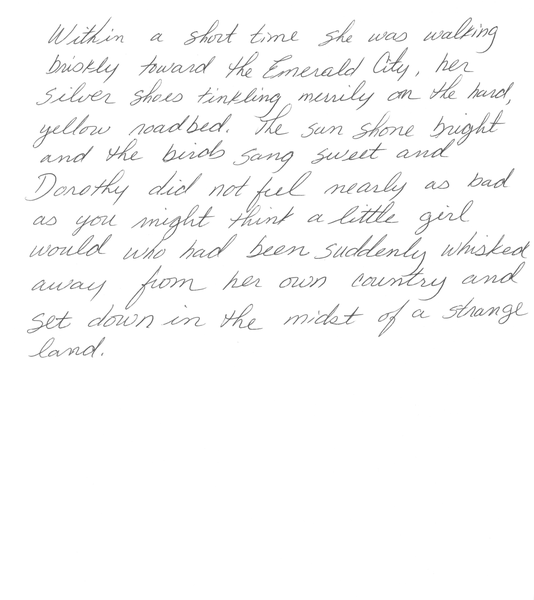 Within a short time she was walking
briskly toward the Emerald City, her
silver shoes tinkling merrily on the hard,
yellow roadbed. The sun shone bright
and the birds sang sweet and
Dorothy did not feel nearly as bad
as you might think a little girl
would who had been suddenly whisked
away from her own country and
set down in the midst of a strange
land.